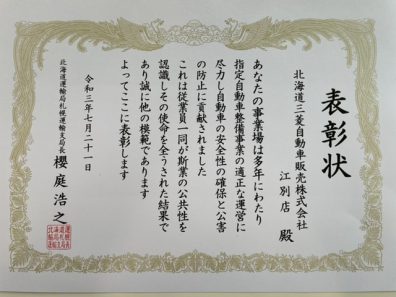 表彰状
北海道三菱自動車販売株式会社
江別店 殿
あなたの事業場は多年にわたり
指定自動車整備事業の適正な運営に
尽力し自動車の安全性の確保と公害
の防止に貢献されました
これは従業員一同が斯業の公共性を
認識しその使命を全うされた結果で
あり誠に他の模範であります
よってここに表彰します
令和三年七月二十一日
北海道運輸局札幌運輸支局長 櫻庭浩之